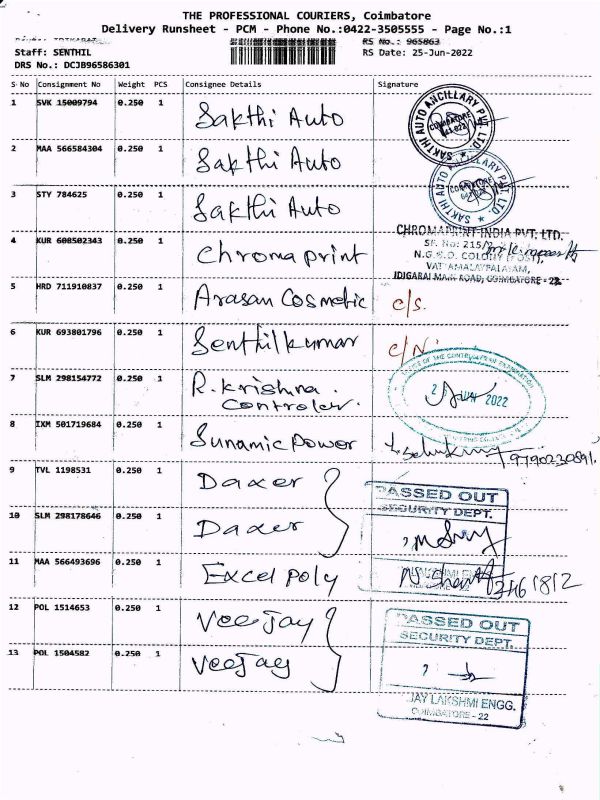 THE PROFESSIONAL COURIERS, Coimbatore
Delivery Runsheet - PCM - Phone No.:0422-3505555 - Page No.:1
RS No.: 965863
Staff: SENTHIL
RS Date: 25-Jun-2022
DRS No.: DCJB96586301
S No Consignment No Weight PCS Consignee Details Signature
1 SVK 15009794 0.250 1 Sakthi Auto
SAKTHI AUTO ANCILLARY PVT. LTD.
COIMBATORE
2 MAA 566584304 0.250 1 Sakthi Auto
SAKTHI AUTO ANCILLARY PVT. LTD.
COIMBATORE
3 STY 784625 0.250 1 Sakthi Auto
4 KUR 608502343 0.250 1 Chroma print
CHROMAPRINT INDIA PVT. LTD.
SF. No: 215/
N.G.G.O. COLONY (POST),
VATTAMALAYPALAYAM,
IDIGARAI MAIN ROAD, COIMBATORE - 22.
5 HRD 711910837 0.250 1 Arasan Cosmetic c/s.
6 KUR 693801796 0.250 1 Senthilkumar c/N.
7 SLM 298154772 0.250 1 R. Krishna .
Controler.
OFFICE OF THE CONTROLLER OF EXAMINATION
2022
8 IXM 501719684 0.250 1 Sunamic Power
9790230891.
9 TVL 1198531 0.250 1 Daxer
PASSED OUT
SECURITY DEPT.
10 SLM 298178646 0.250 1 Daxer
11 MAA 566493696 0.250 1 Excel poly
12 POL 1514653 0.250 1 Veejay
PASSED OUT
SECURITY DEPT.
13 POL 1504582 0.250 1 Veejay
JAY LAKSHMI ENGG.
COIMBATORE - 22